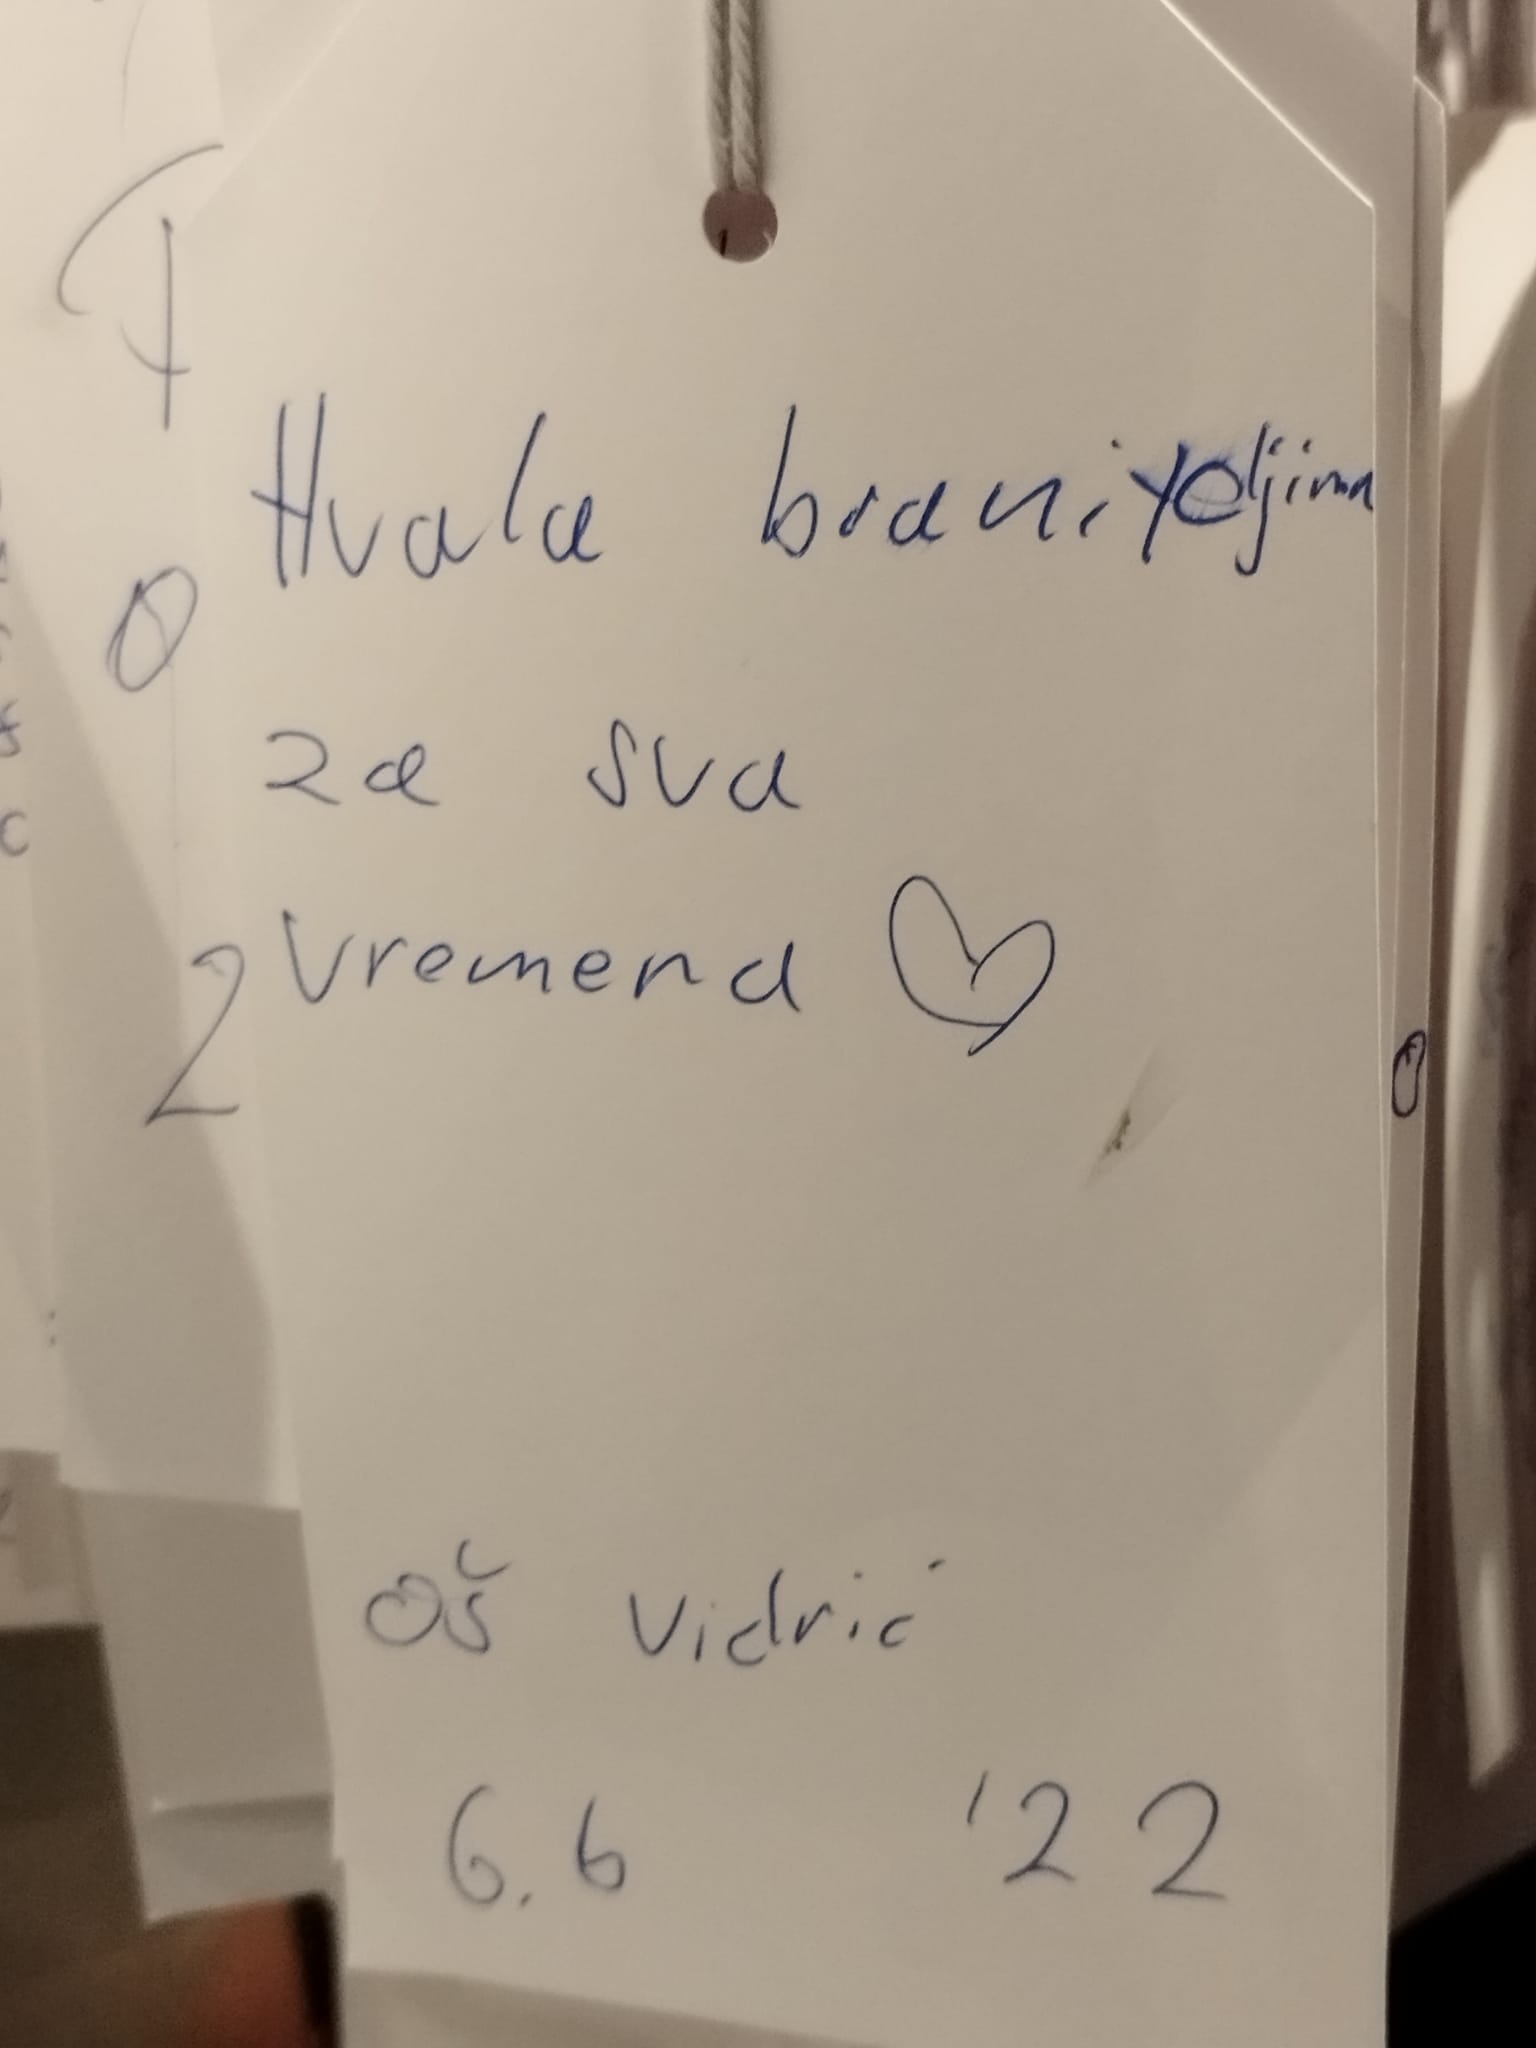 Hvala braniteljima
za sva
vremena
OŠ Vidrić
6.b '22